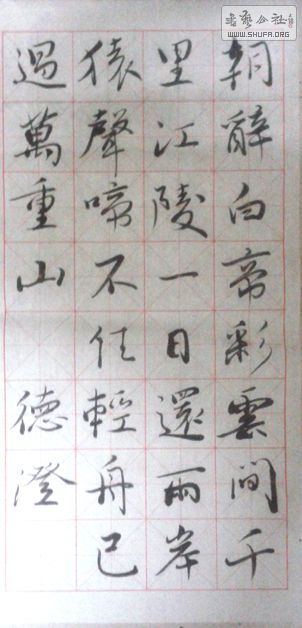 朝辭白帝彩雲間千
里江陵一日還兩岸
猿聲啼不住輕舟已
過萬重山 德澄
書藝公社
WWW.SHUFA.ORG